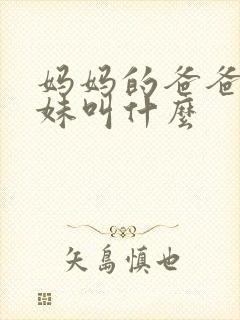 妈妈的爸爸
妹叫什麼
矢島慎也